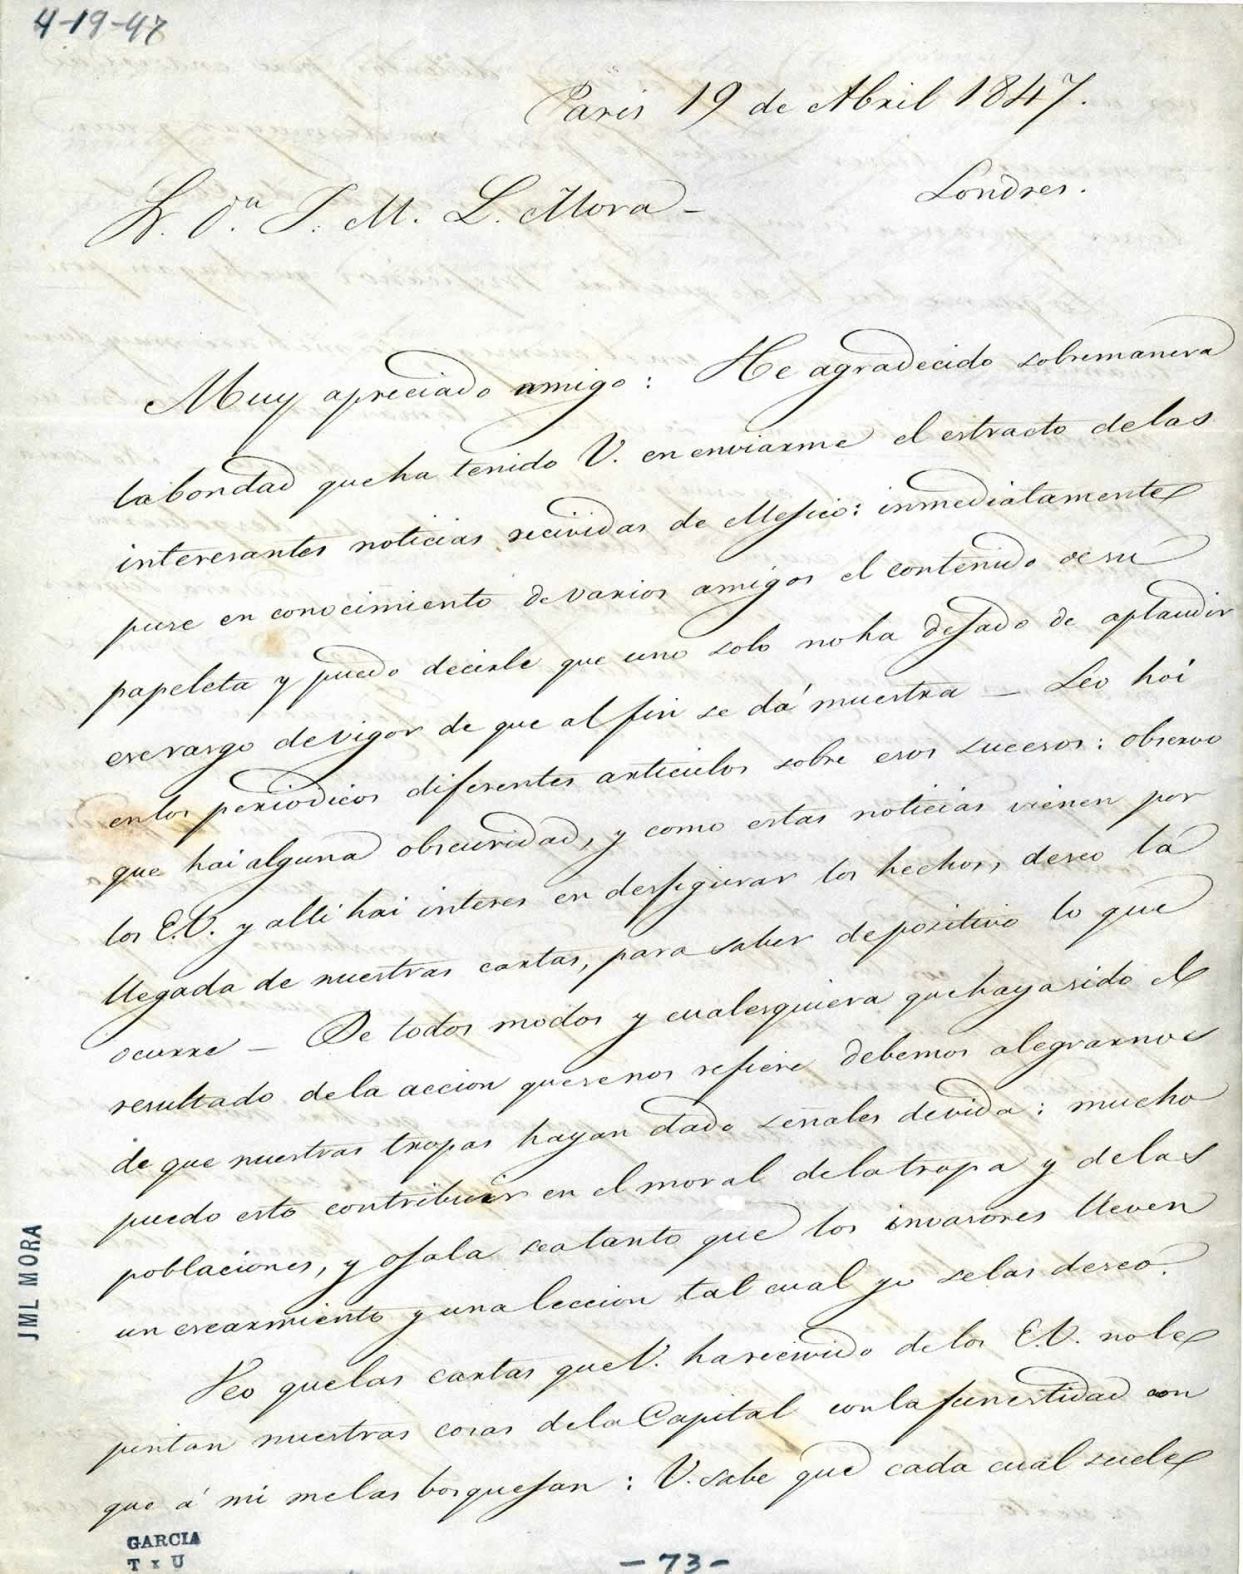 4-19-47
Paris 19 de Abril 1847.
Londres.
Sr. Dn. J. M. L. Mora –
Muy apreciado amigo: He agradecido sobremanera
la bondad que ha tenido V. en enviarme el estracto de las
interesantes noticias recividas de Mejico: inmediatamente
puse en conocimiento de varios amigos el contenido de su
papeleta y puedo decirle que uno solo no ha dejado de aplaudir
ese rasgo de vigor de que al fin se dá muestra – Leo hoi
en los periodicos diferentes articulos sobre esos sucesos: observo
que hai alguna obscuridad, y como estas noticias vienen por
los E.U. y alli hai interes en desfigurar los hechos, deseo la
llegada de nuestras cartas, para saber de positivo lo que
ocurre – De todos modos y cualesquiera que haya sido el
resultado de la accion que se nos refiere debemos alegrarnos
de que nuestras tropas hayan dado señales de vida: mucho
puedo esto contribuir en el moral de la tropa y de las
poblaciones, y ojala sea tanto que los invasores lleven
un escarmiento y una leccion tal cual yo se las deseo.
Veo que las cartas que V. ha recivido de los E.U. no le
pintan nuestras cosas de la Capital con la funestidad con
que á mi me las bosquejan: V. sabe que cada cual suele
JML MORA
GARCIA
T x U
– 73 –